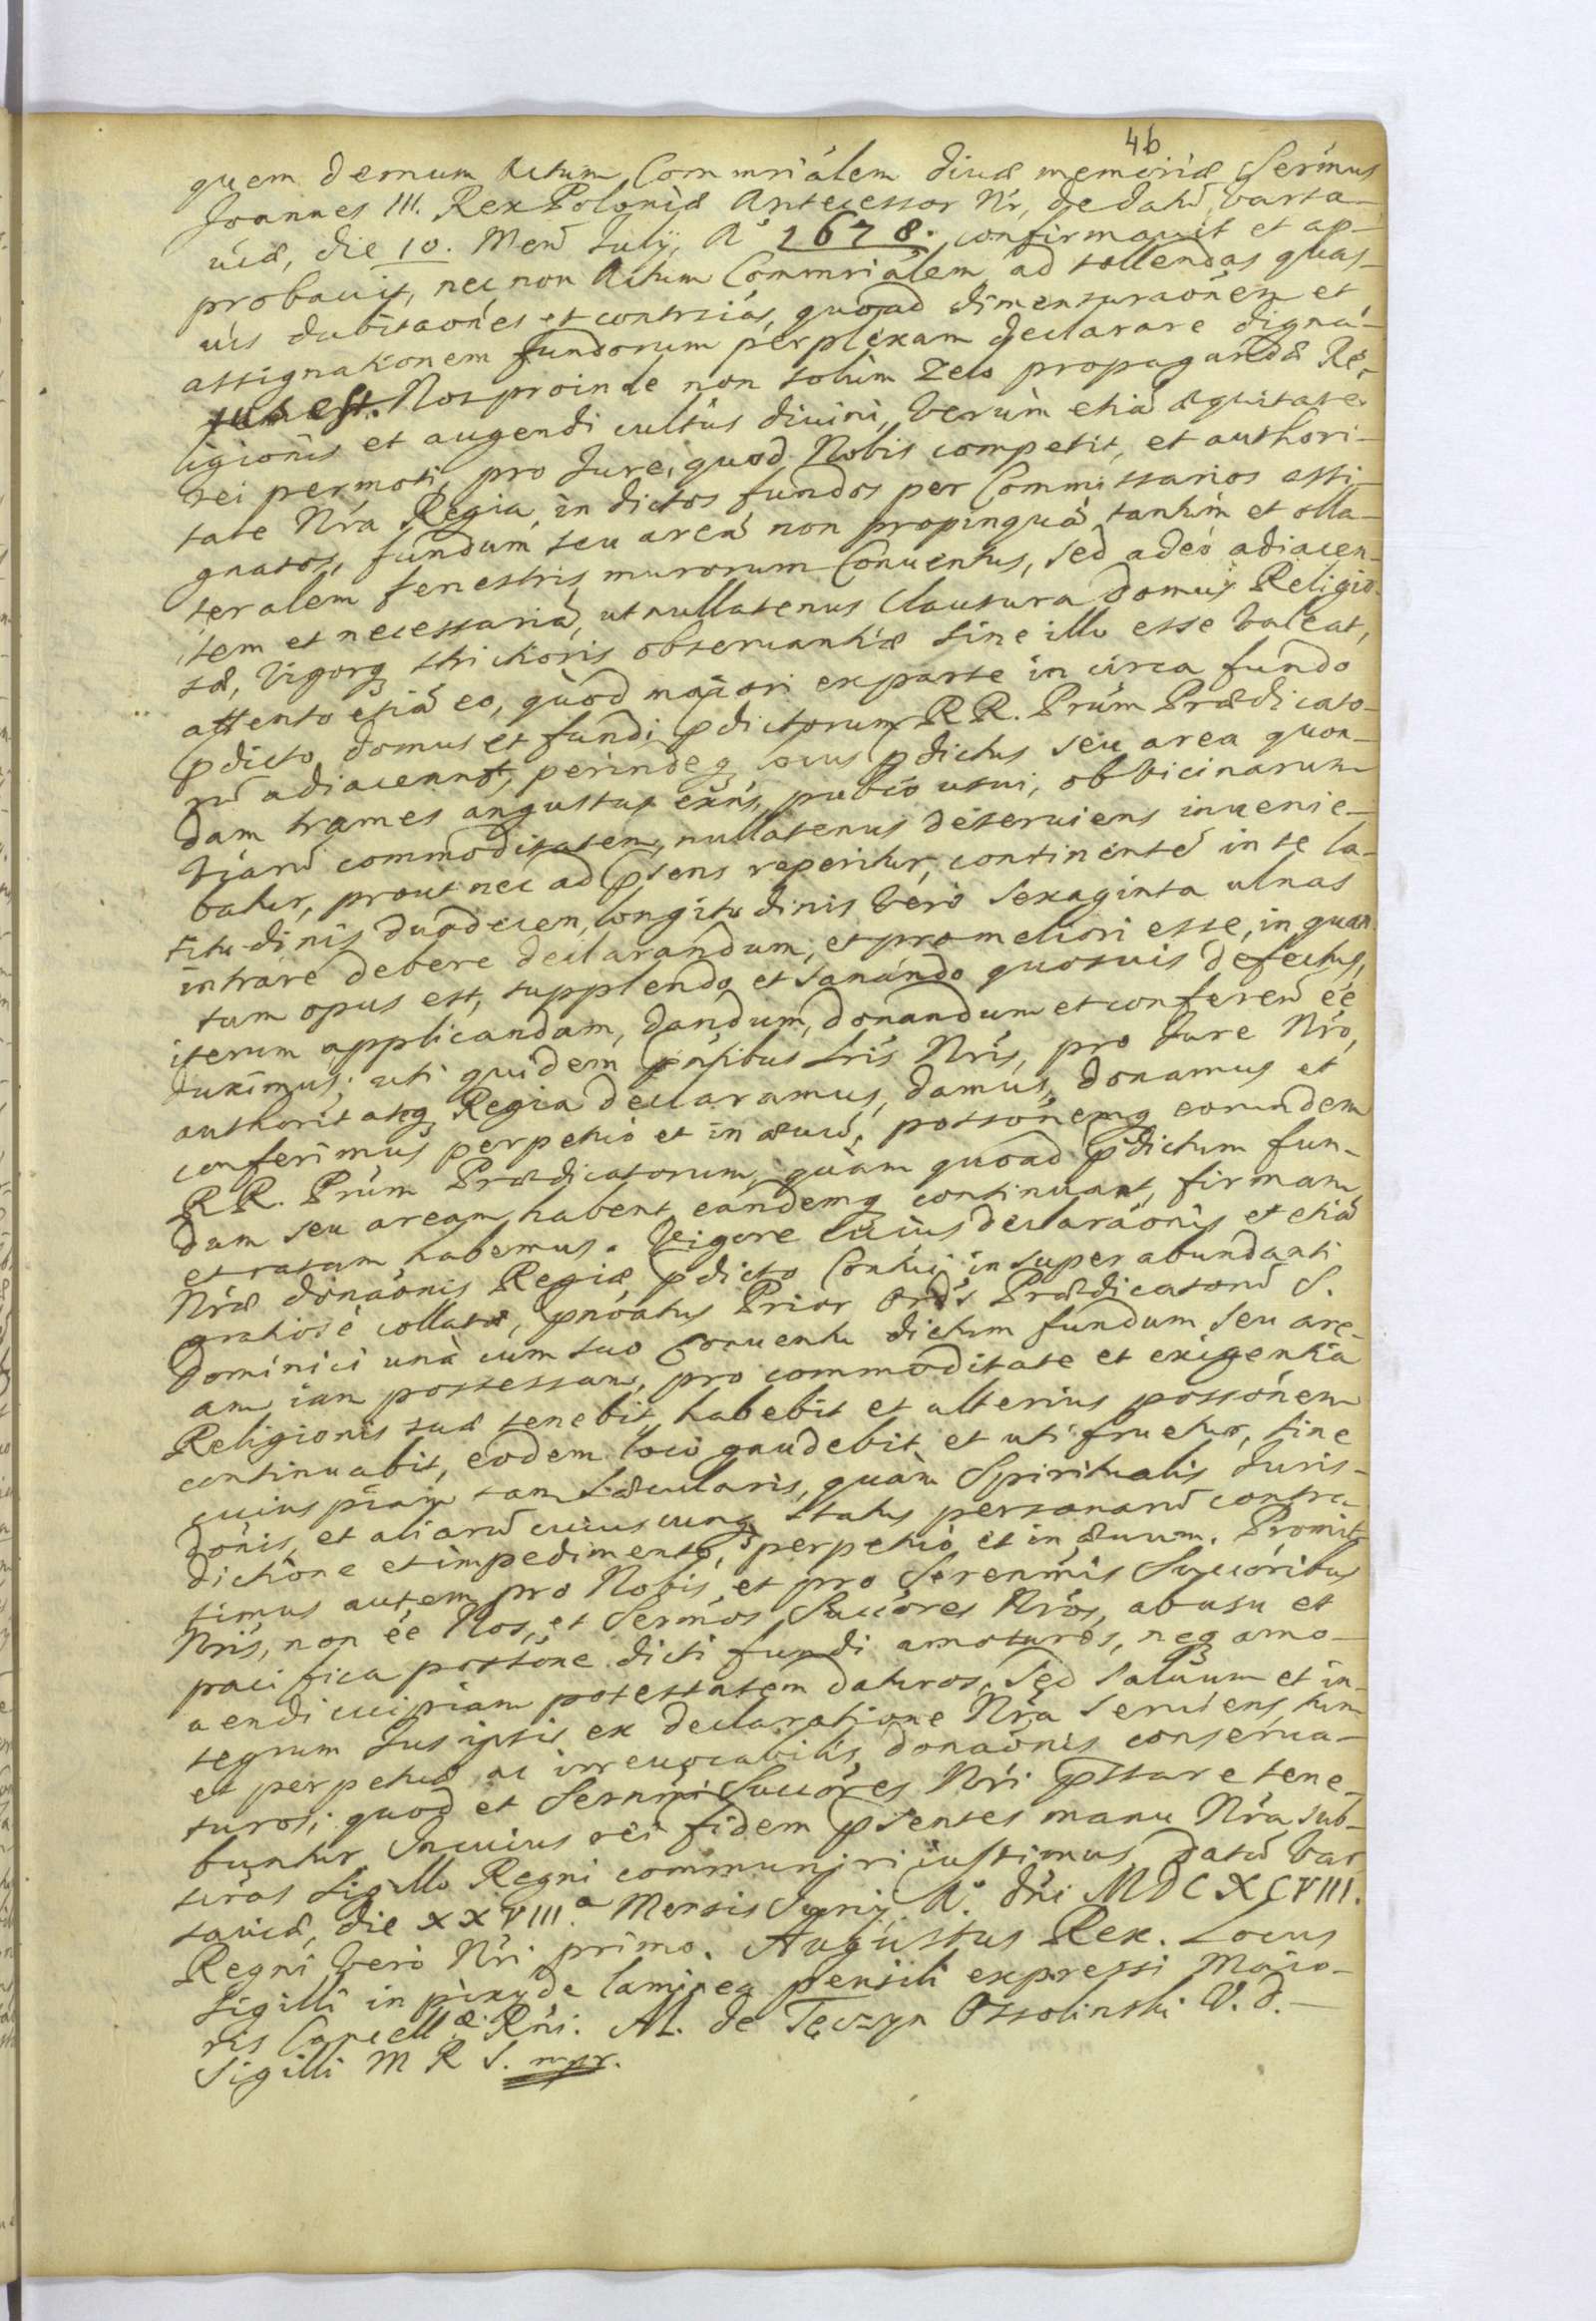 46
quem demum Actum Commriálem divæ memoriæ Sermus
Joannes III. Rex Poloniæ Antecessor Nr, de datũ Varsa-
viæ, die 10. Menš July, Aº 1678. confirmavit et ap-
probavit, nec non Actum Commriálem ad tollendas quas-
vis dubitaónes et contrsiás, quoad dimensuraónem et
assignationem fundorum perplexam declarare digna-
tus est. Nos proinde non solùm zelo propagandæ Re-
ligionis et augendi cultûs divini, verùm etiã æquitate
rei permoti, pro Jure, quod Nobis competit, et authori-
tate Nrá Regia, in dictos fundos per Commissarios assi-
gnatos, fundum seu areã non propinquã tantùm et olla-
teralem fenestris murorum Conventus, sed adeò adiacen-
tem et necessariã, ut nullatenus clausura domûs Religio-
sæ, vigorq strictioris observantiæ sine illo esse valeat,
attento etiã eo, quòd maiori ex parte in circa fundo
pdicto domus et fundi pdictorum RR. Prúm Prædicato-
rũ adiacerent, perindeq locus pdictus seu area quon-
dam trames angustus exńs, publco usui, ob vicinarum
viarũ commoditatem, nullatenus deserviens invenie-
batur, prout nec ad psens reperitur, continentẽ in se la-
titudinis duodecem, longitudinis verò sexaginta ulnas
intrare debere declarandum, et pro meliori esse, in quan-
tum opus est, supplendo et sanándo quosvis defectus,
iterum applicandam, dandum, donandum et conferenď eé
duximus; uti quidem pńtibus Lrís Nrís, pro Jure Nró,
authoritateq Regia declaramus, damus, donamus et
conferimus perpetuò et in ævũ, possónemq eorundem
RR. Prúm Prædicatorum, quam quoad pdictum fun-
dum seu aream habent, eandemq continuant, firmam
et ratam habemus. Vigore cuius declaraónis et etiã
Nræ donaónis Regiæ pdicto Contui insuper abundanti
gratiosè collatæ, pnóatus Prior Ordš Prædicatorũ S.
Dominici unà cum suo Conventu dictum fundum seu are-
am iam possessam, pro commoditate et exigentia
Religionis suæ tenebit, habebit et ulterius possónem
continuabit, eodem loco gaudebit et uti fruetur, sine
cuiuspiam tam Sæcularis, quàm Spiritualis Juris-
dónis, et aliarũ cuiuscunq status personarũ contra-
dictione et impedimento, perpetuò et in ævum. Promit-
timus autem pro Nobis, et pro Serenmis Succóribus
Nrís, non eé Nos, et Sermós Succóres Nrós, ab usu et
pacifica possóne dicti fundi amoturos, neq amo-
vendi cuipiam potestatem daturos, sed salvum et in-
tegrum Jus ipsis ex declaratione Nrá serviens, tum
et perpetuæ ac irrevocabilis, donaónis conserva-
turos; quod et Sernmi Succóres Nri pstare tene-
buntur. In cuius rei fidem psentes manu Nrá sub-
scras Sigillo Regni communiri iussimus. Datũ Var-
saviæ, die XXVIII.ª Mensis Juny. Aº. Dni MDCXCVIII.
Regni verò Nri primo. Augustus Rex. Locus
Sigilli in pixyde laminea pensili expressi Maio-
ris Cancellæ. Rni. M. de Tęczyn Ossolinski V. d.-
Sigilli M R S. mpr.